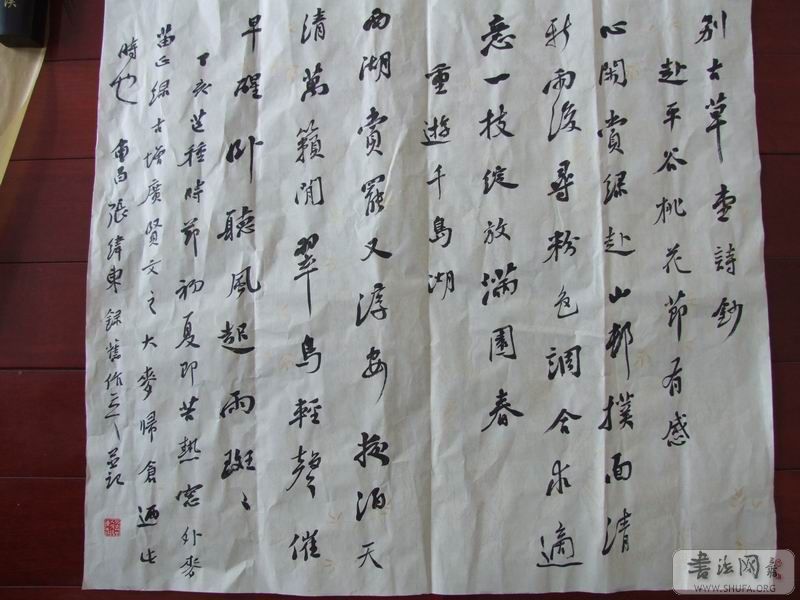 别古草堂詩鈔
赴平谷桃花節有感
心閑賞緑赴山邨撲面清
新雨後尋粉色調合求適
意一枝綻放滿園春
重遊千島湖
西湖賞罷又淳安夜泊天
清萬籟閒翠鳥輕聲催
早醒卧聽風起雨斑〻
丁亥芒種時節初夏即苦熱窓外麥
苗正緑古增廣賢文之大麥歸倉迺此
時也 南昌張緯東録舊作二 並記
书法网
WWW.SHUFA.ORG